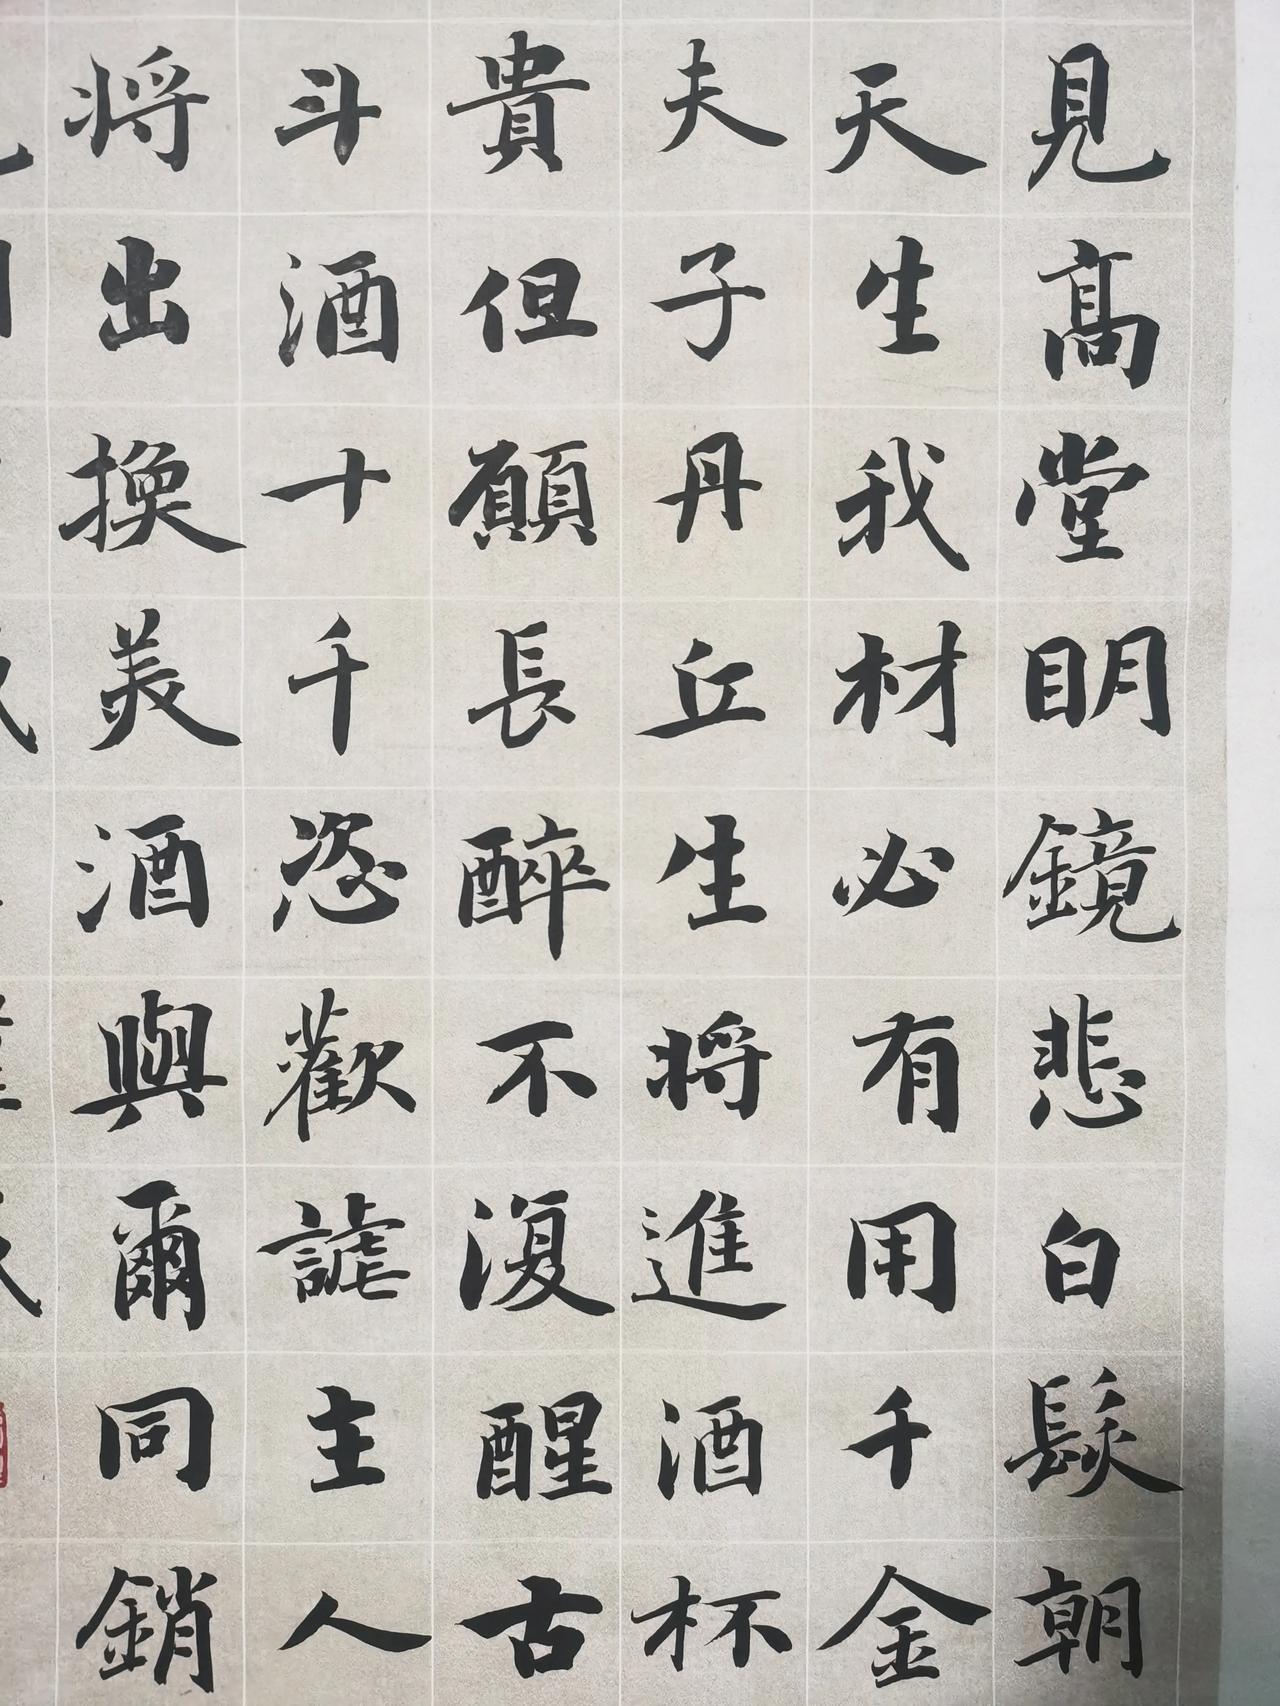 見高堂明鏡悲白髮朝
天生我材必有用千金
夫子丹丘生將進酒杯
貴但願長醉不復醒古
斗酒十千恣歡謔主人
將出換美酒與爾同銷